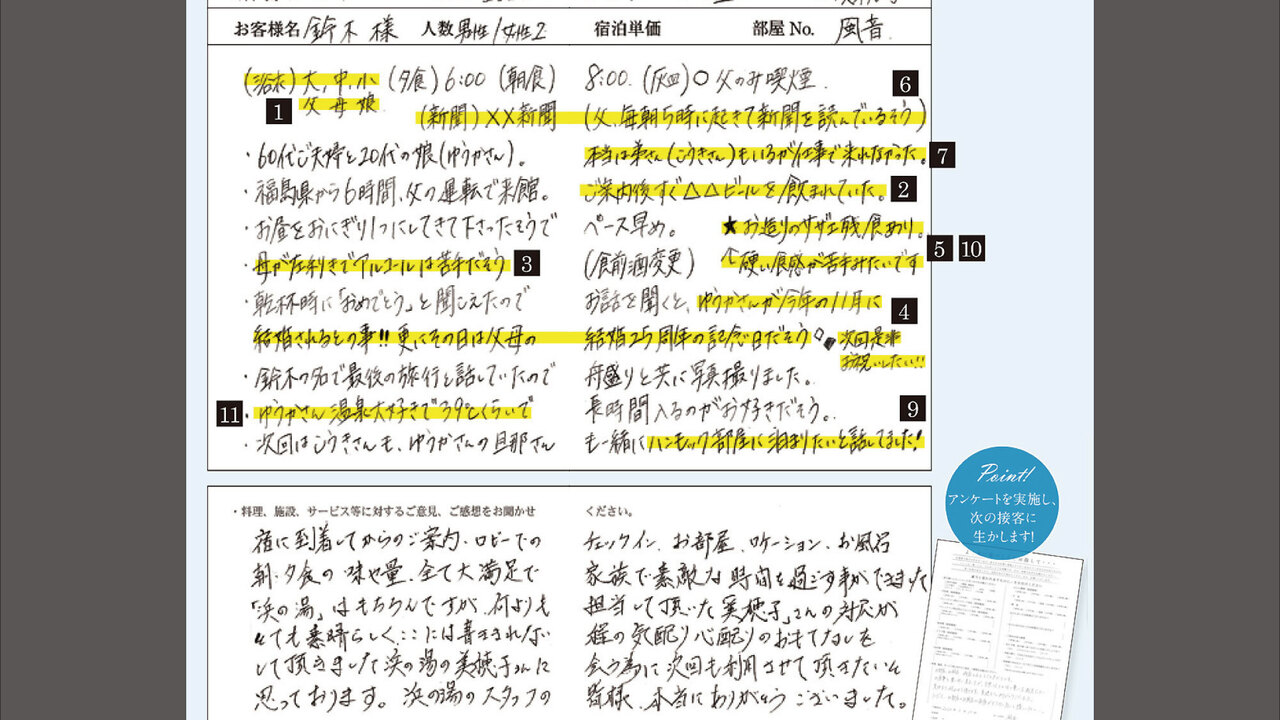 お客様名 鈴木 様 人数 男性1女性2 宿泊単価 部屋 No. 風音
(浴衣) 大、中、小 (夕食) 6:00 (朝食) 8:00. (灰皿) ○ 父のみ喫煙.
6
1
父 母 娘
(新聞) ××新聞 (父、毎朝5時に起きて新聞を読んでいるそう)
・60代ご夫婦と20代の娘(ゆうかさん)。 本当は弟さん(こうきさん)もいるが仕事で来れなかった。
7
・福島県から6時間、父の運転で来館。 ご案内後すぐ△△ビールを飲まれていた。
2
・お昼をおにぎり1つにしてきて下さったそうで ペース早め。 ★お造りのサザエ残食あり。
5 10
・母が左利きでアルコールは苦手だそう 3 (食前酒変更) ↑硬い食感が苦手みたいです
・乾杯時に「おめでとう」と聞こえたので お話を聞くと、ゆうかさんが今年の11月に
4
結婚されるとの事!!更にその日は父母の 結婚25周年の記念日だそう
次回是非
お祝いしたい!!
・鈴木の名で最後の旅行と話していたので 舟盛りと共に写真撮りました。
11
・ゆうかさん温泉大好きで39℃くらいで 長時間入るのがお好きだそう。
9
・次回はこうきさんも、ゆうかさんの旦那さん も一緒にハンモック部屋に泊まりたいと話してました!
・料理、施設、サービス等に対するご意見、ご感想をお聞かせ ください。
宿に到着してからのご案内、ロビーでの チェックイン、お部屋、ロケーション、お風呂
朝・夕食の味や量、全て大満足で 家族で素敵な時間を過ごす事ができました
浜の湯はもちろんですが、何よりも 担当して頂いた美穂子さんの対応が
とても素晴らしくここには書ききれない 程の気配り心配りのおもてなしを
して頂きました浜の湯の美穂子さんに 会う為に次回も利用させて頂きたいと
思っております。浜の湯のスタッフの 皆様、本当にありがとうございました。
Point!
アンケートを実施し、
次の接客に
生かします!